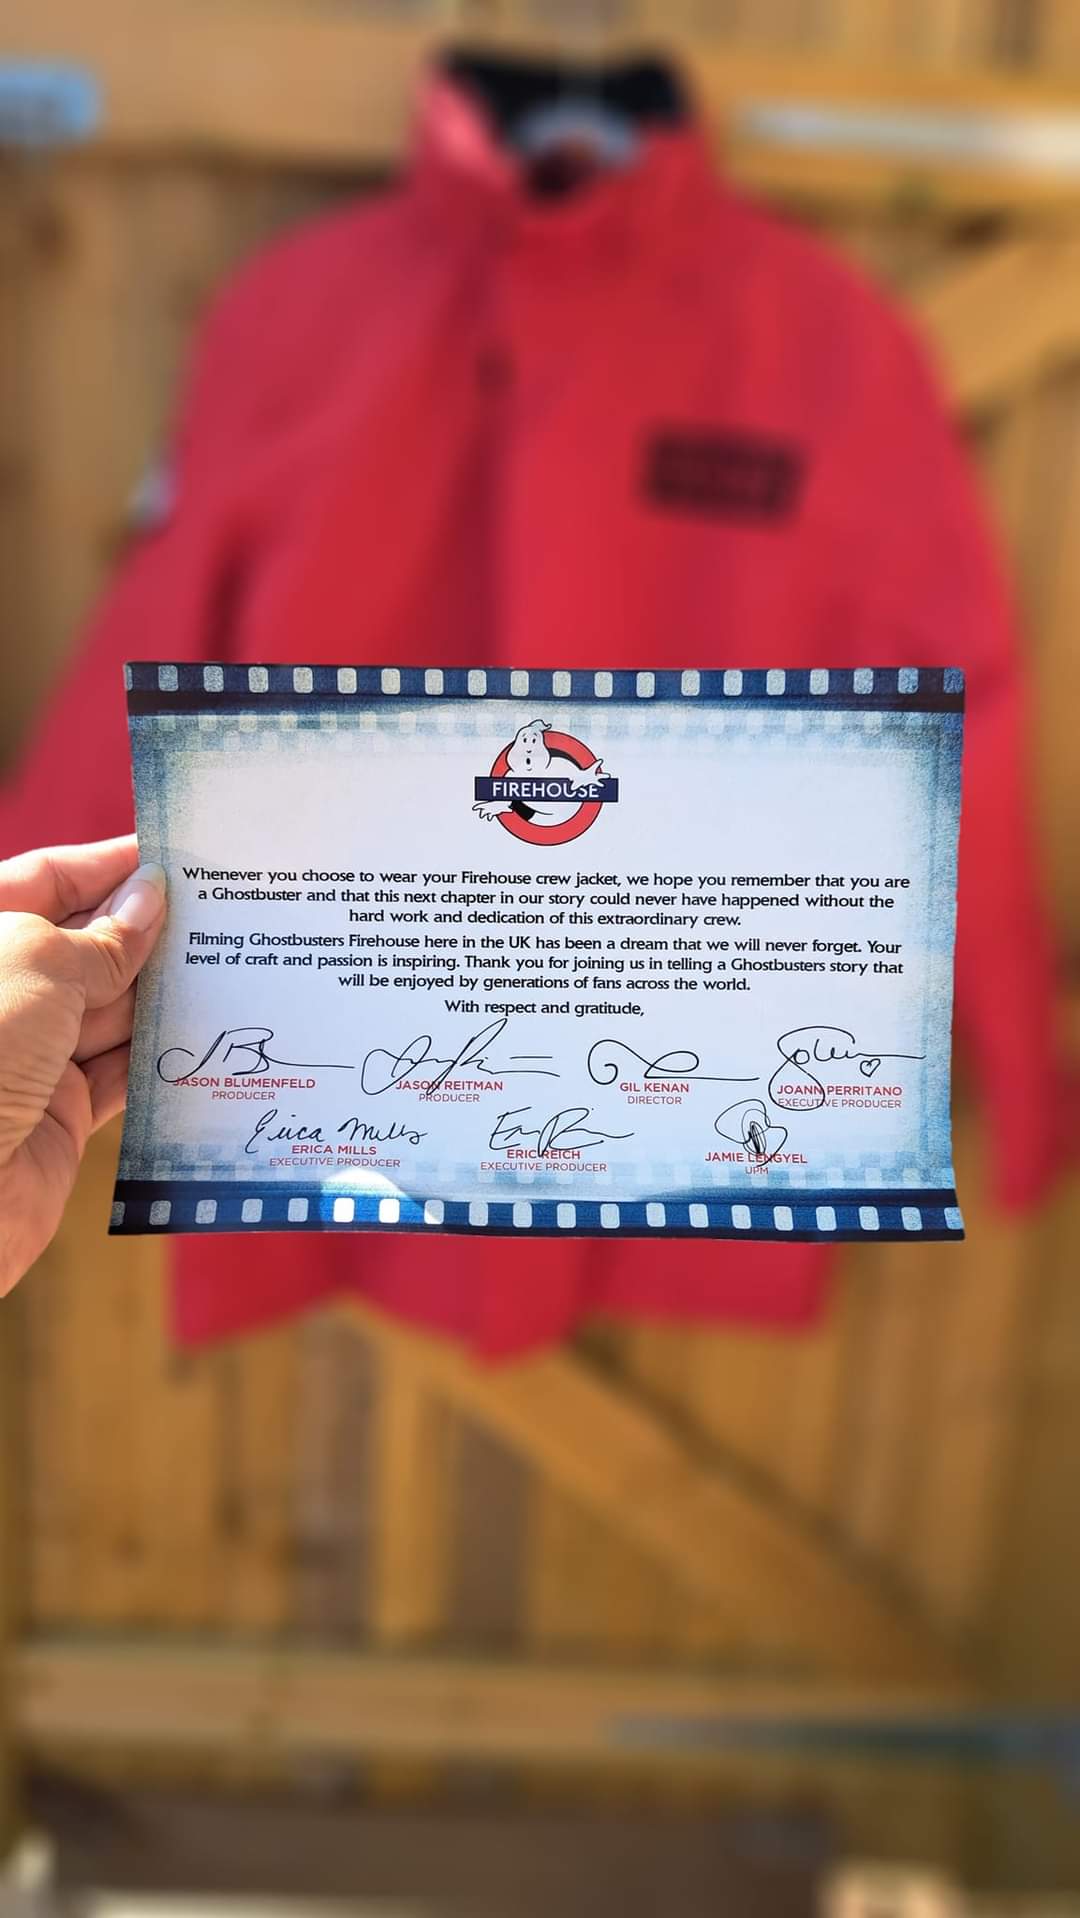 FIREHOUSE
Whenever you choose to wear your Firehouse crew jacket, we hope you remember that you are
a Ghostbuster and that this next chapter in our story could never have happened without the
hard work and dedication of this extraordinary crew.
Filming Ghostbusters Firehouse here in the UK has been a dream that we will never forget. Your
level of craft and passion is inspiring. Thank you for joining us in telling a Ghostbusters story that
will be enjoyed by generations of fans across the world.
With respect and gratitude,
JASON BLUMENFELD
PRODUCER
JASON REITMAN
PRODUCER
GIL KENAN
DIRECTOR
JOANN PERRITANO
EXECUTIVE PRODUCER
Erica Mills
ERICA MILLS
EXECUTIVE PRODUCER
ERIC REICH
EXECUTIVE PRODUCER
JAMIE LENGYEL
UPM